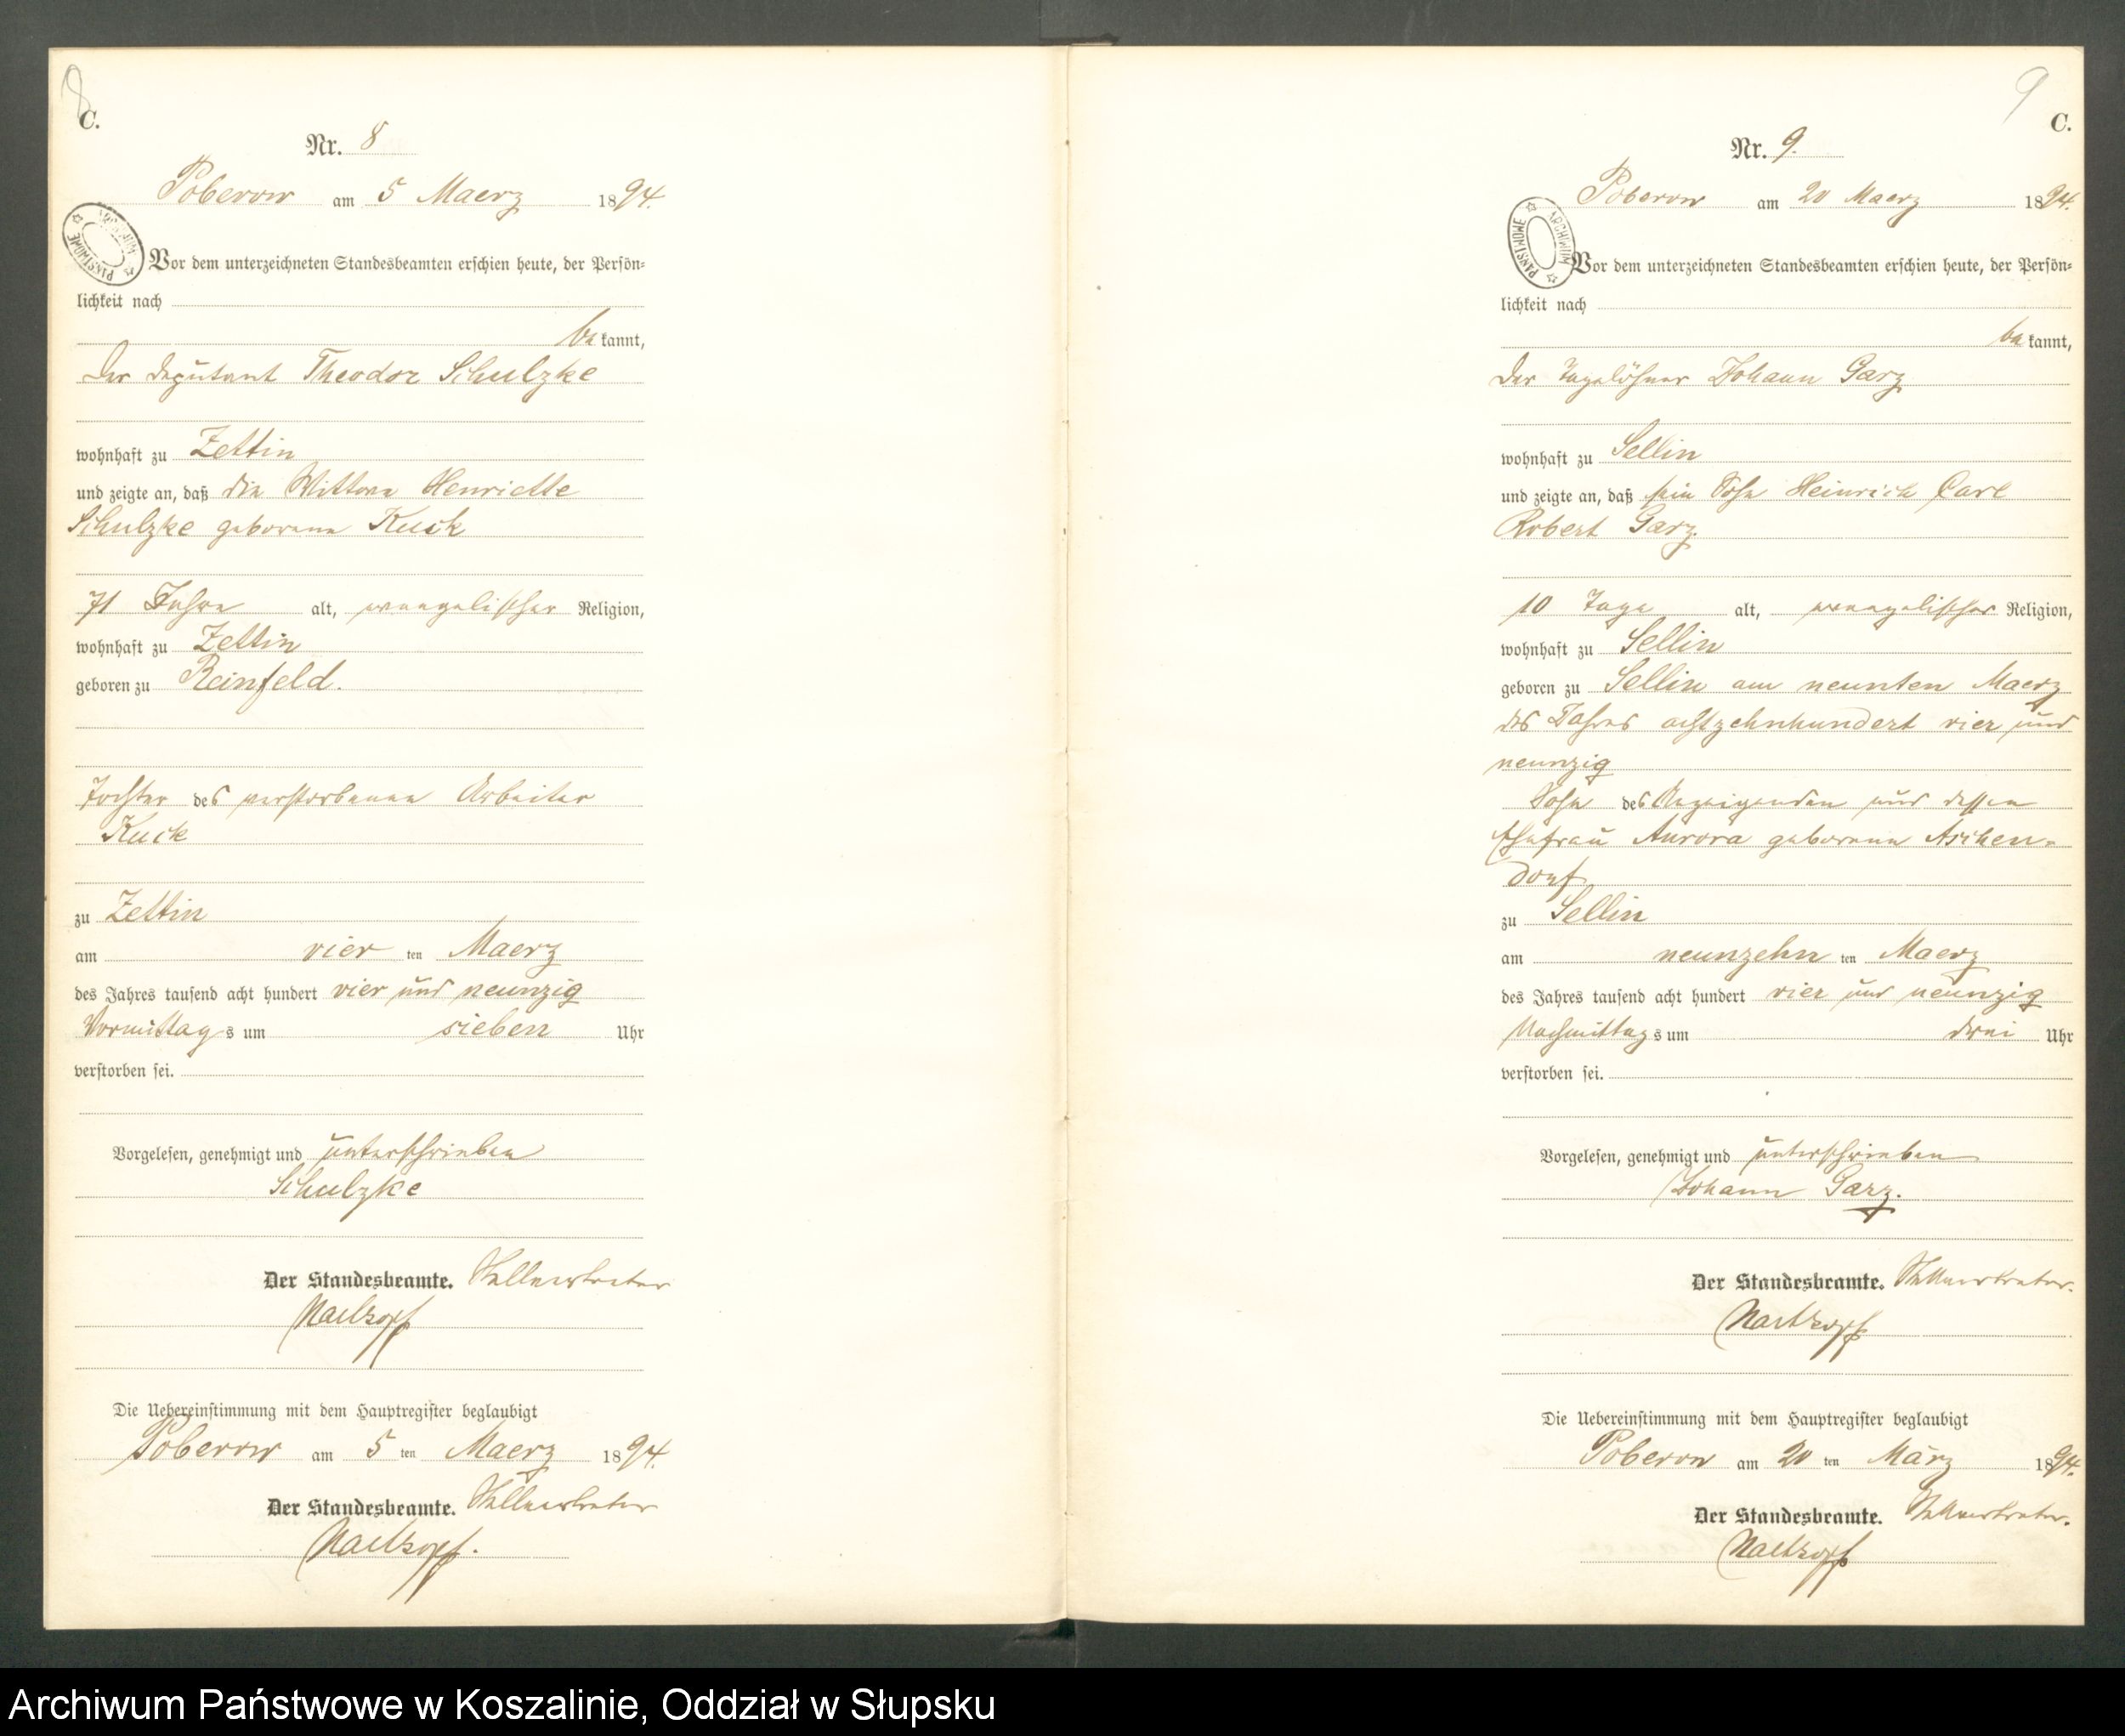 8
C.
Nr. 8
Poberow am 5 Maerz 1894.
ARCHIWUM PAŃSTWOWE
Vor dem unterzeichneten Standesbeamten erschien heute, der Persön-
lichkeit nach
bekannt,
der Deputant Theodor Schulzke
wohnhaft zu Zettin
und zeigte an, daß die Wittwe Henriette
Schulzke geborene Kuck
71 Jahre alt, evangelischer Religion,
wohnhaft zu Zettin
geboren zu Reinfeld.
Tochter des verstorbenen Arbeiter
Kuck
zu Zettin
am vier ten Maerz
des Jahres tausend acht hundert vier und neunzig
Vormittags um sieben Uhr
verstorben sei.
Vorgelesen, genehmigt und unterschrieben
Schulzke
Der Standesbeamte. Stellvertreter
Die Uebereinstimmung mit dem Hauptregister beglaubigt
Poberow am 5 ten Maerz 1894.
Der Standesbeamte. Stellvertreter
9
C.
Nr. 9.
Poberow am 20 Maerz 1894.
ARCHIWUM PAŃSTWOWE
Vor dem unterzeichneten Standesbeamten erschien heute, der Persön-
lichkeit nach
bekannt,
der Tagelöhner Johann Garz
wohnhaft zu Sellin
und zeigte an, daß sein Sohn Heinrich Carl
Robert Garz.
10 Tage alt, evangelischer Religion,
wohnhaft zu Sellin
geboren zu Sellin am neunten Maerz
des Jahres achtzehnhundert vier und
neunzig
Sohn des Anzeigenden und dessen
Ehefrau Aurora geborene Aschen-
dorf
zu Sellin
am neunzehn ten Maerz
des Jahres tausend acht hundert vier und neunzig
Nachmittags um drei Uhr
verstorben sei.
Vorgelesen, genehmigt und unterschrieben
Johann Garz.
Der Standesbeamte. Stellvertreter.
Die Uebereinstimmung mit dem Hauptregister beglaubigt
Poberow am 20 ten März 1894.
Der Standesbeamte. Stellvertreter.
Archiwum Państwowe w Koszalinie, Oddział w Słupsku